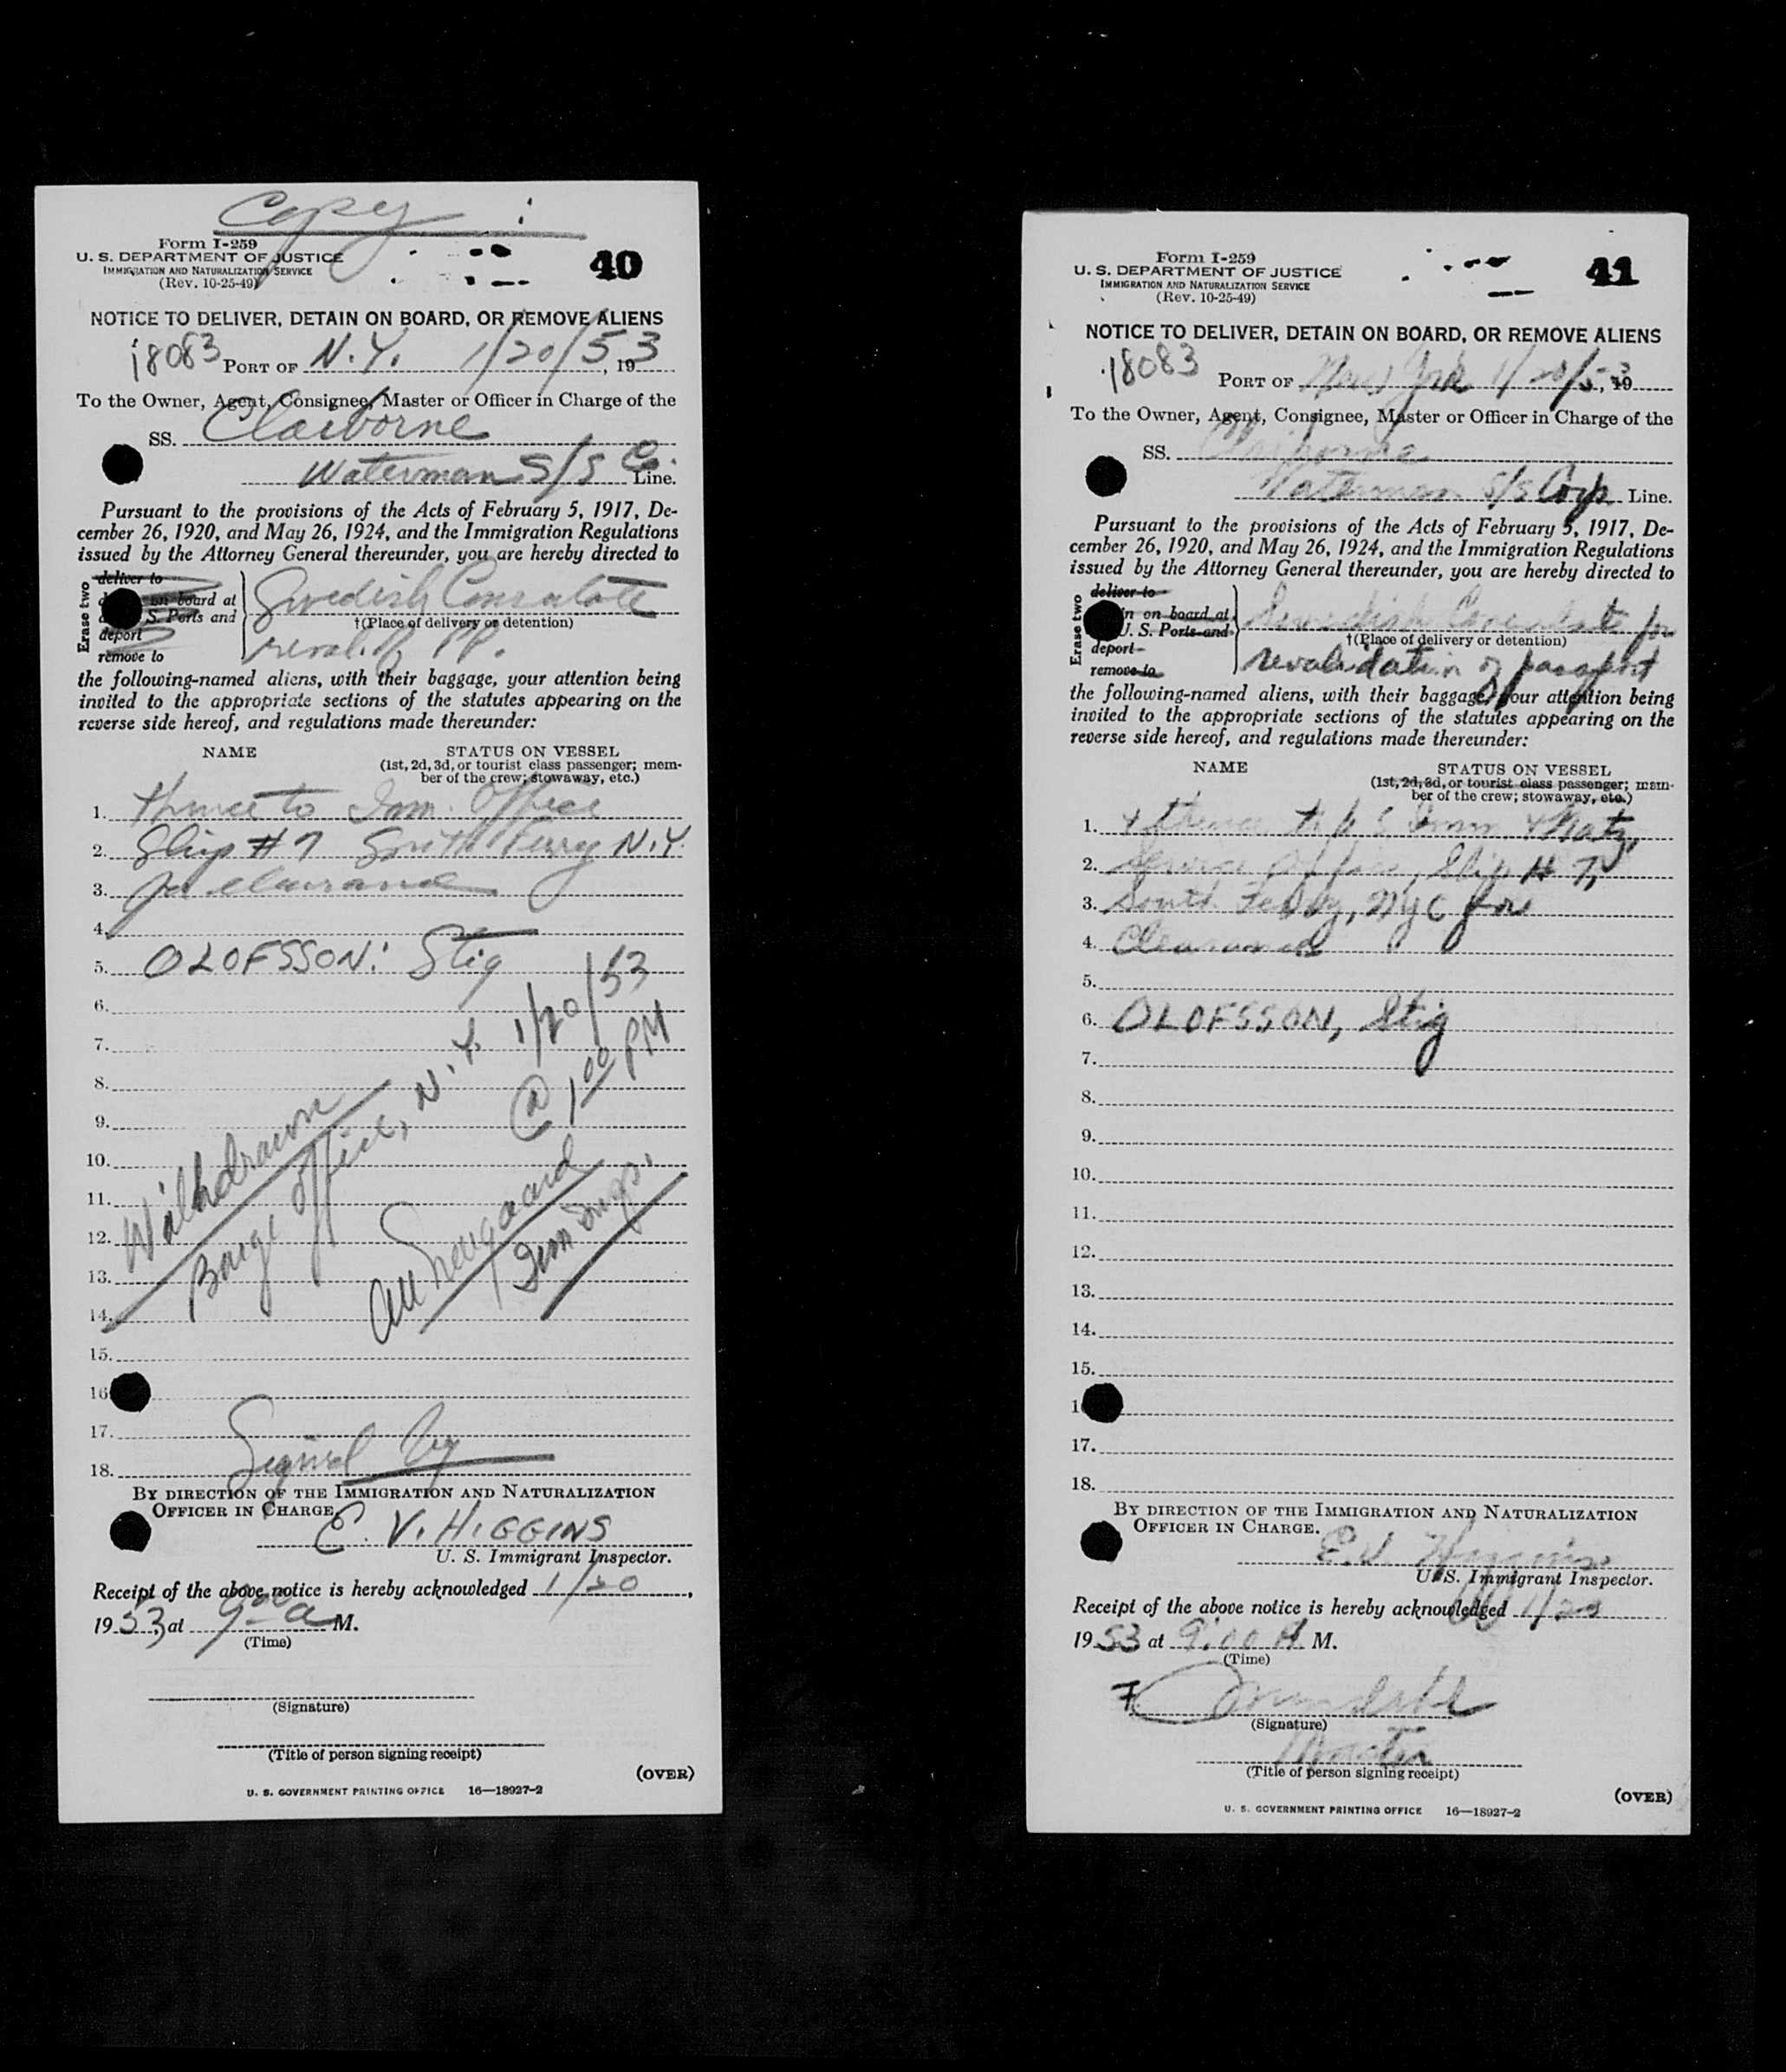 Copy
Form I-259
U. S. DEPARTMENT OF JUSTICE
IMMIGRATION AND NATURALIZATION SERVICE
(Rev. 10-25-49)
40
NOTICE TO DELIVER, DETAIN ON BOARD, OR REMOVE ALIENS
18083 PORT OF N.Y. 1/20/53, 19
To the Owner, Agent, Consignee, Master or Officer in Charge of the
SS. Claiborne
Waterman S/S Co. Line.
Pursuant to the provisions of the Acts of February 5, 1917, De-
cember 26, 1920, and May 26, 1924, and the Immigration Regulations
issued by the Attorney General thereunder, you are hereby directed to
Erase two
deliver to
on board at
S. Ports and
deport
remove to
Swedish Consulate
†(Place of delivery or detention)
PP.
the following-named aliens, with their baggage, your attention being
invited to the appropriate sections of the statutes appearing on the
reverse side hereof, and regulations made thereunder:
NAME
STATUS ON VESSEL
(1st, 2d, 3d, or tourist class passenger; mem-
ber of the crew; stowaway, etc.)
1. thence to Imm. Office
2. Slip #7 South Ferry N.Y.
3. for clearance
4.
5. OLOFSSON: Stig
6.
7.
8.
9.
10.
11.
12.
13.
14.
15.
16
17.
18.
Withdrawn
Barge Office, N.Y. 1/20/53
@ 1:00 PM
Imm Insp.
Signed by
BY DIRECTION OF THE IMMIGRATION AND NATURALIZATION
OFFICER IN CHARGE.
E. V. HIGGINS
U. S. Immigrant Inspector.
Receipt of the above notice is hereby acknowledged 1/20,
1953 at 9:00 a M.
(Time)
(Signature)
(Title of person signing receipt)
(OVER)
U. S. GOVERNMENT PRINTING OFFICE 16—18927-2
Form I-259
U. S. DEPARTMENT OF JUSTICE
IMMIGRATION AND NATURALIZATION SERVICE
(Rev. 10-25-49)
41
NOTICE TO DELIVER, DETAIN ON BOARD, OR REMOVE ALIENS
18083 PORT OF New York 1/20/53, 19
To the Owner, Agent, Consignee, Master or Officer in Charge of the
SS. Claiborne
Waterman S/S Corp. Line.
Pursuant to the provisions of the Acts of February 5, 1917, De-
cember 26, 1920, and May 26, 1924, and the Immigration Regulations
issued by the Attorney General thereunder, you are hereby directed to
Erase two
deliver to
in on board at
U. S. Ports and
deport
remove to
Swedish Consulate for
†(Place of delivery or detention)
revalidation of passport
the following-named aliens, with their baggage, your attention being
invited to the appropriate sections of the statutes appearing on the
reverse side hereof, and regulations made thereunder:
NAME
STATUS ON VESSEL
(1st, 2d, 3d, or tourist class passenger; mem-
ber of the crew; stowaway, etc.)
1. & thence to U S Imm & Natz,
2. Service Office, Slip # 7,
3. South Ferry, NYC for
4. Clearance
5.
6. OLOFSSON, Stig
7.
8.
9.
10.
11.
12.
13.
14.
15.
1
17.
18.
BY DIRECTION OF THE IMMIGRATION AND NATURALIZATION
OFFICER IN CHARGE.
E.V. Higgins
U. S. Immigrant Inspector.
Receipt of the above notice is hereby acknowledged 1/20
1953 at 9:00 A. M.
(Time)
(Signature)
Master
(Title of person signing receipt)
(OVER)
U. S. GOVERNMENT PRINTING OFFICE 16—18927-2